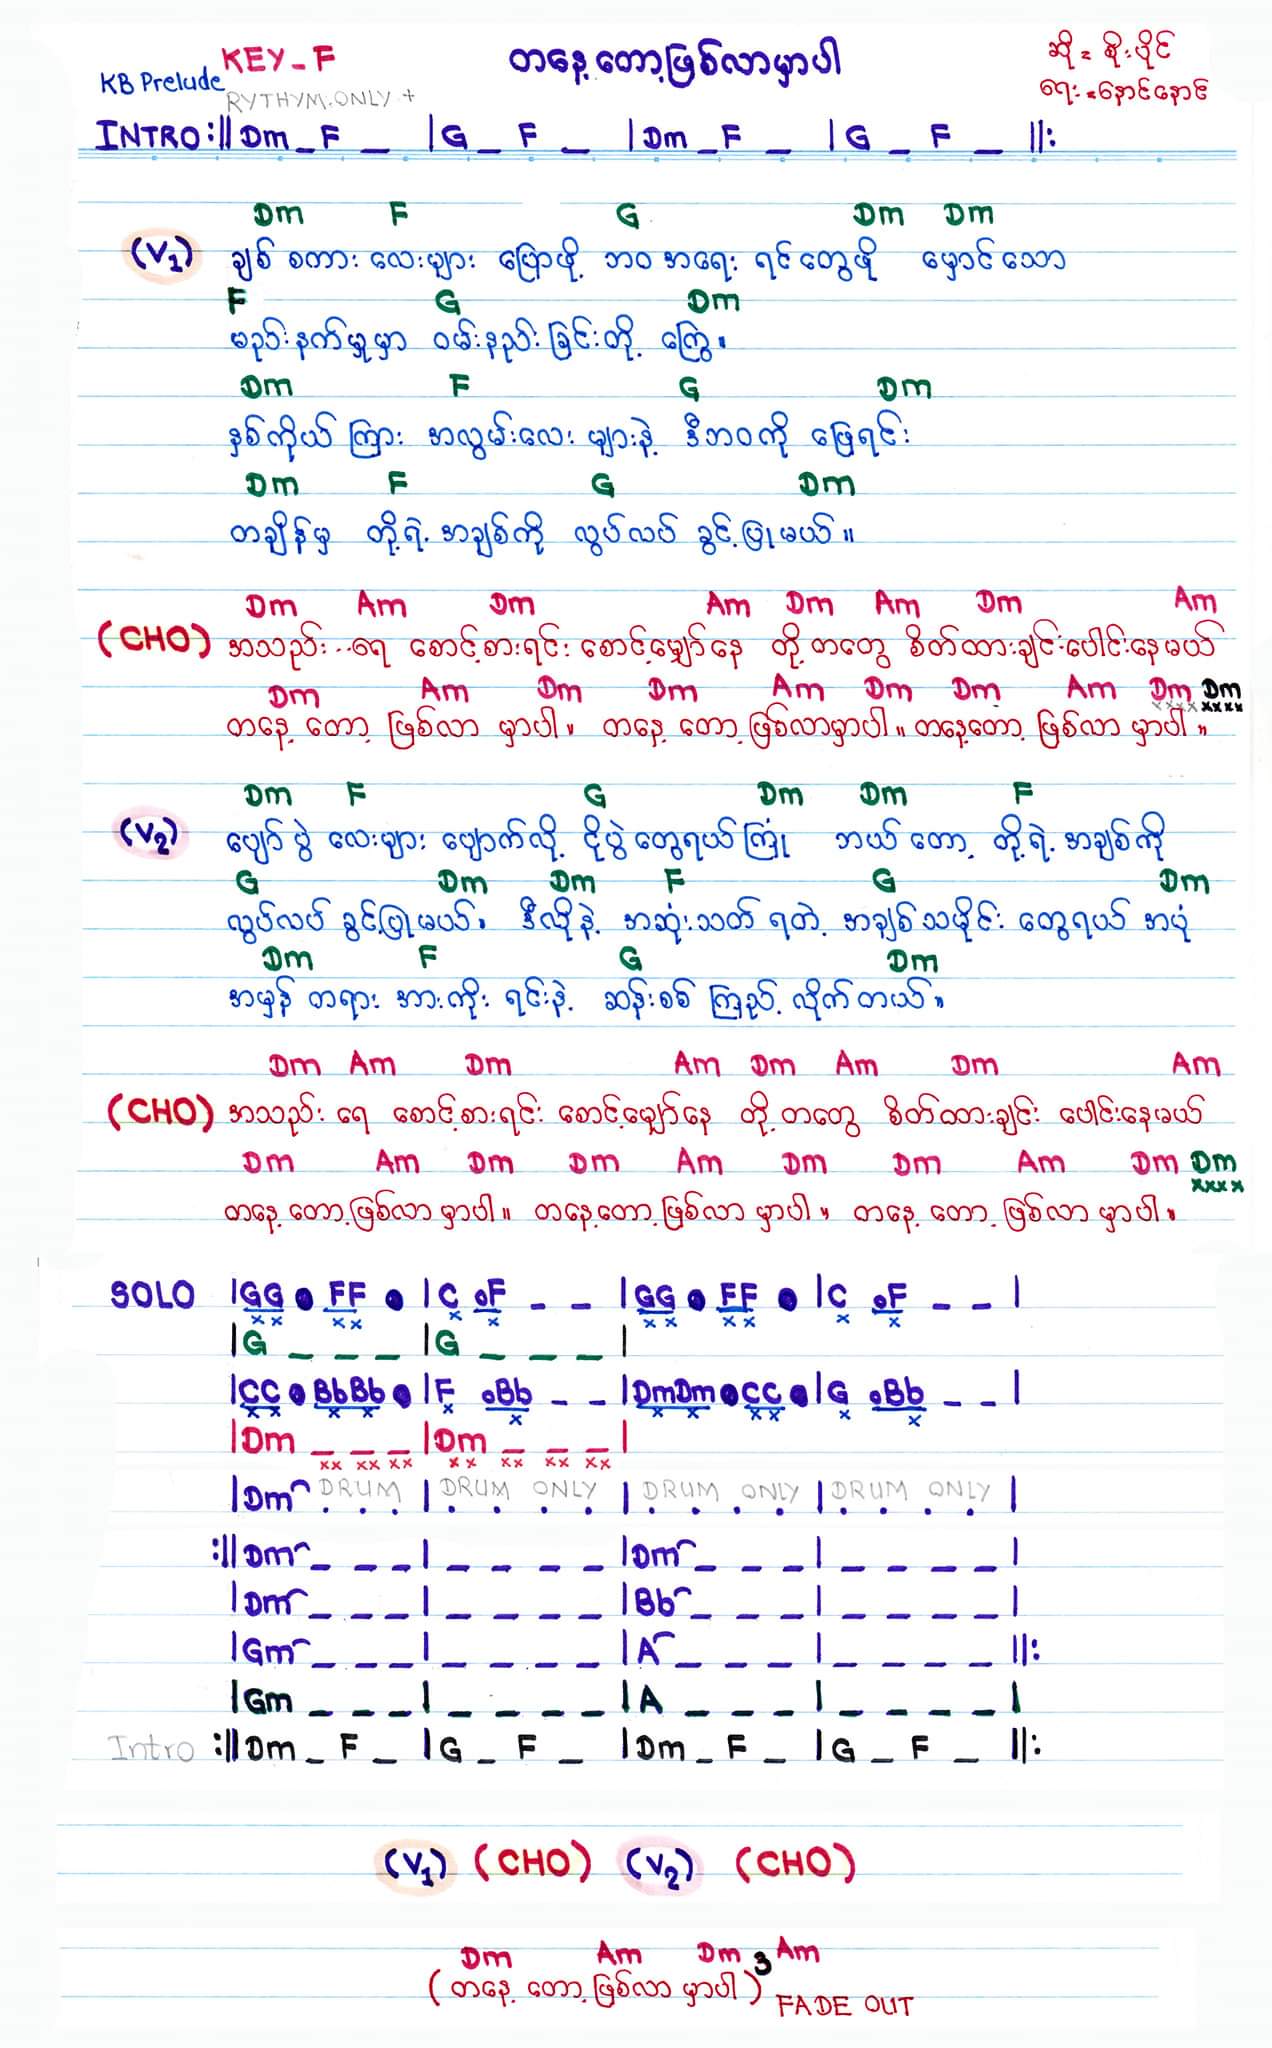 KEY_F
တနေ့တော့ဖြစ်လာမှာပါ
ဆို = စိုးပိုင်
KB Prelude
RYTHYM.ONLY +
ရေး = နောင်နောင်
INTRO :|| Dm _ F _ | G _ F _ | Dm _ F _ | G _ F _ ||:
Dm F G Dm Dm
(V1) ချစ် စကား လေးများ ပြောဖို့ ဘဝ အရေး ရင်တွေဖို မှောင်သော
F G Dm
မည်းနက်မှုမှာ ဝမ်းနည်းခြင်းတို့ ကြွေ။
Dm F G Dm
နှစ်ကိုယ် ကြား အလွမ်းလေး များနဲ့ ဒီဘဝကို ဖြေရင်း
Dm F G Dm
တချိန်မှ တို့ရဲ့ အချစ်ကို လွပ်လပ် ခွင့်ပြုမယ်။
Dm Am Dm Am Dm Am Dm Am
(CHO) အသည်း..ရေ စောင့်စားရင်း စောင့်မျှော်နေ တို့တတွေ စိတ်ထားချင်းပေါင်းနေမယ်
Dm Am Dm Dm Am Dm Dm Am Dm Dm
xxxx xxxx
တနေ့ တော့ ဖြစ်လာ မှာပါ။ တနေ့ တော့ ဖြစ်လာမှာပါ။ တနေ့တော့ ဖြစ်လာ မှာပါ။
Dm F G Dm Dm F
(V2) ပျော်ပွဲ လေးများ ပျောက်လို့ ငိုပွဲတွေရယ်ကြုံ ဘယ်တော့ တို့ရဲ့ အချစ်ကို
G Dm Dm F G Dm
လွပ်လပ် ခွင့်ပြုမယ်။ ဒီလိုနဲ့ အဆုံးသတ် ရတဲ့ အချစ်သမိုင်း တွေရယ် အပုံ
Dm F G Dm
အမှန် တရား အားကိုး ရင်းနဲ့ ဆန်းစစ် ကြည့် လိုက်တယ်။
Dm Am Dm Am Dm Am Dm Am
(CHO) အသည်း ရေ စောင့်စားရင်း စောင့်မျှော်နေ တို့တတွေ စိတ်ထားချင်း ပေါင်းနေမယ်
Dm Am Dm Dm Am Dm Dm Am Dm Dm
xxxx
တနေ့ တော့ဖြစ်လာ မှာပါ။ တနေ့တော့ ဖြစ်လာ မှာပါ။ တနေ့ တော့ ဖြစ်လာ မှာပါ။
SOLO |GG ● FF ● |C •F _ _ |GG ● FF ● |C •F _ _ |
xx xx x x xx xx x x
|G _ _ _ |G _ _ _ |
|CC ● BbBb ● |F •Bb _ _ |DmDm ● CC ● |G •Bb _ _ |
xx x x x x x x xx x x
|Dm _ _ _ |Dm _ _ _ |
xx xx xx xx xx xx xx
|Dm DRUM | DRUM ONLY | DRUM ONLY | DRUM ONLY |
:||Dm _ _ _ | _ _ _ _ |Dm _ _ _ | _ _ _ _ |
|Dm _ _ _ | _ _ _ _ |Bb _ _ _ | _ _ _ _ |
|Gm _ _ _ | _ _ _ _ |A _ _ _ | _ _ _ _ ||:
|Gm _ _ _ | _ _ _ _ |A _ _ _ | _ _ _ _ |
Intro :||Dm _ F _ |G _ F _ |Dm _ F _ |G _ F _ ||:
(V1) (CHO) (V2) (CHO)
Dm Am Dm Am
(တနေ့ တော့ ဖြစ်လာ မှာပါ) 3
FADE OUT